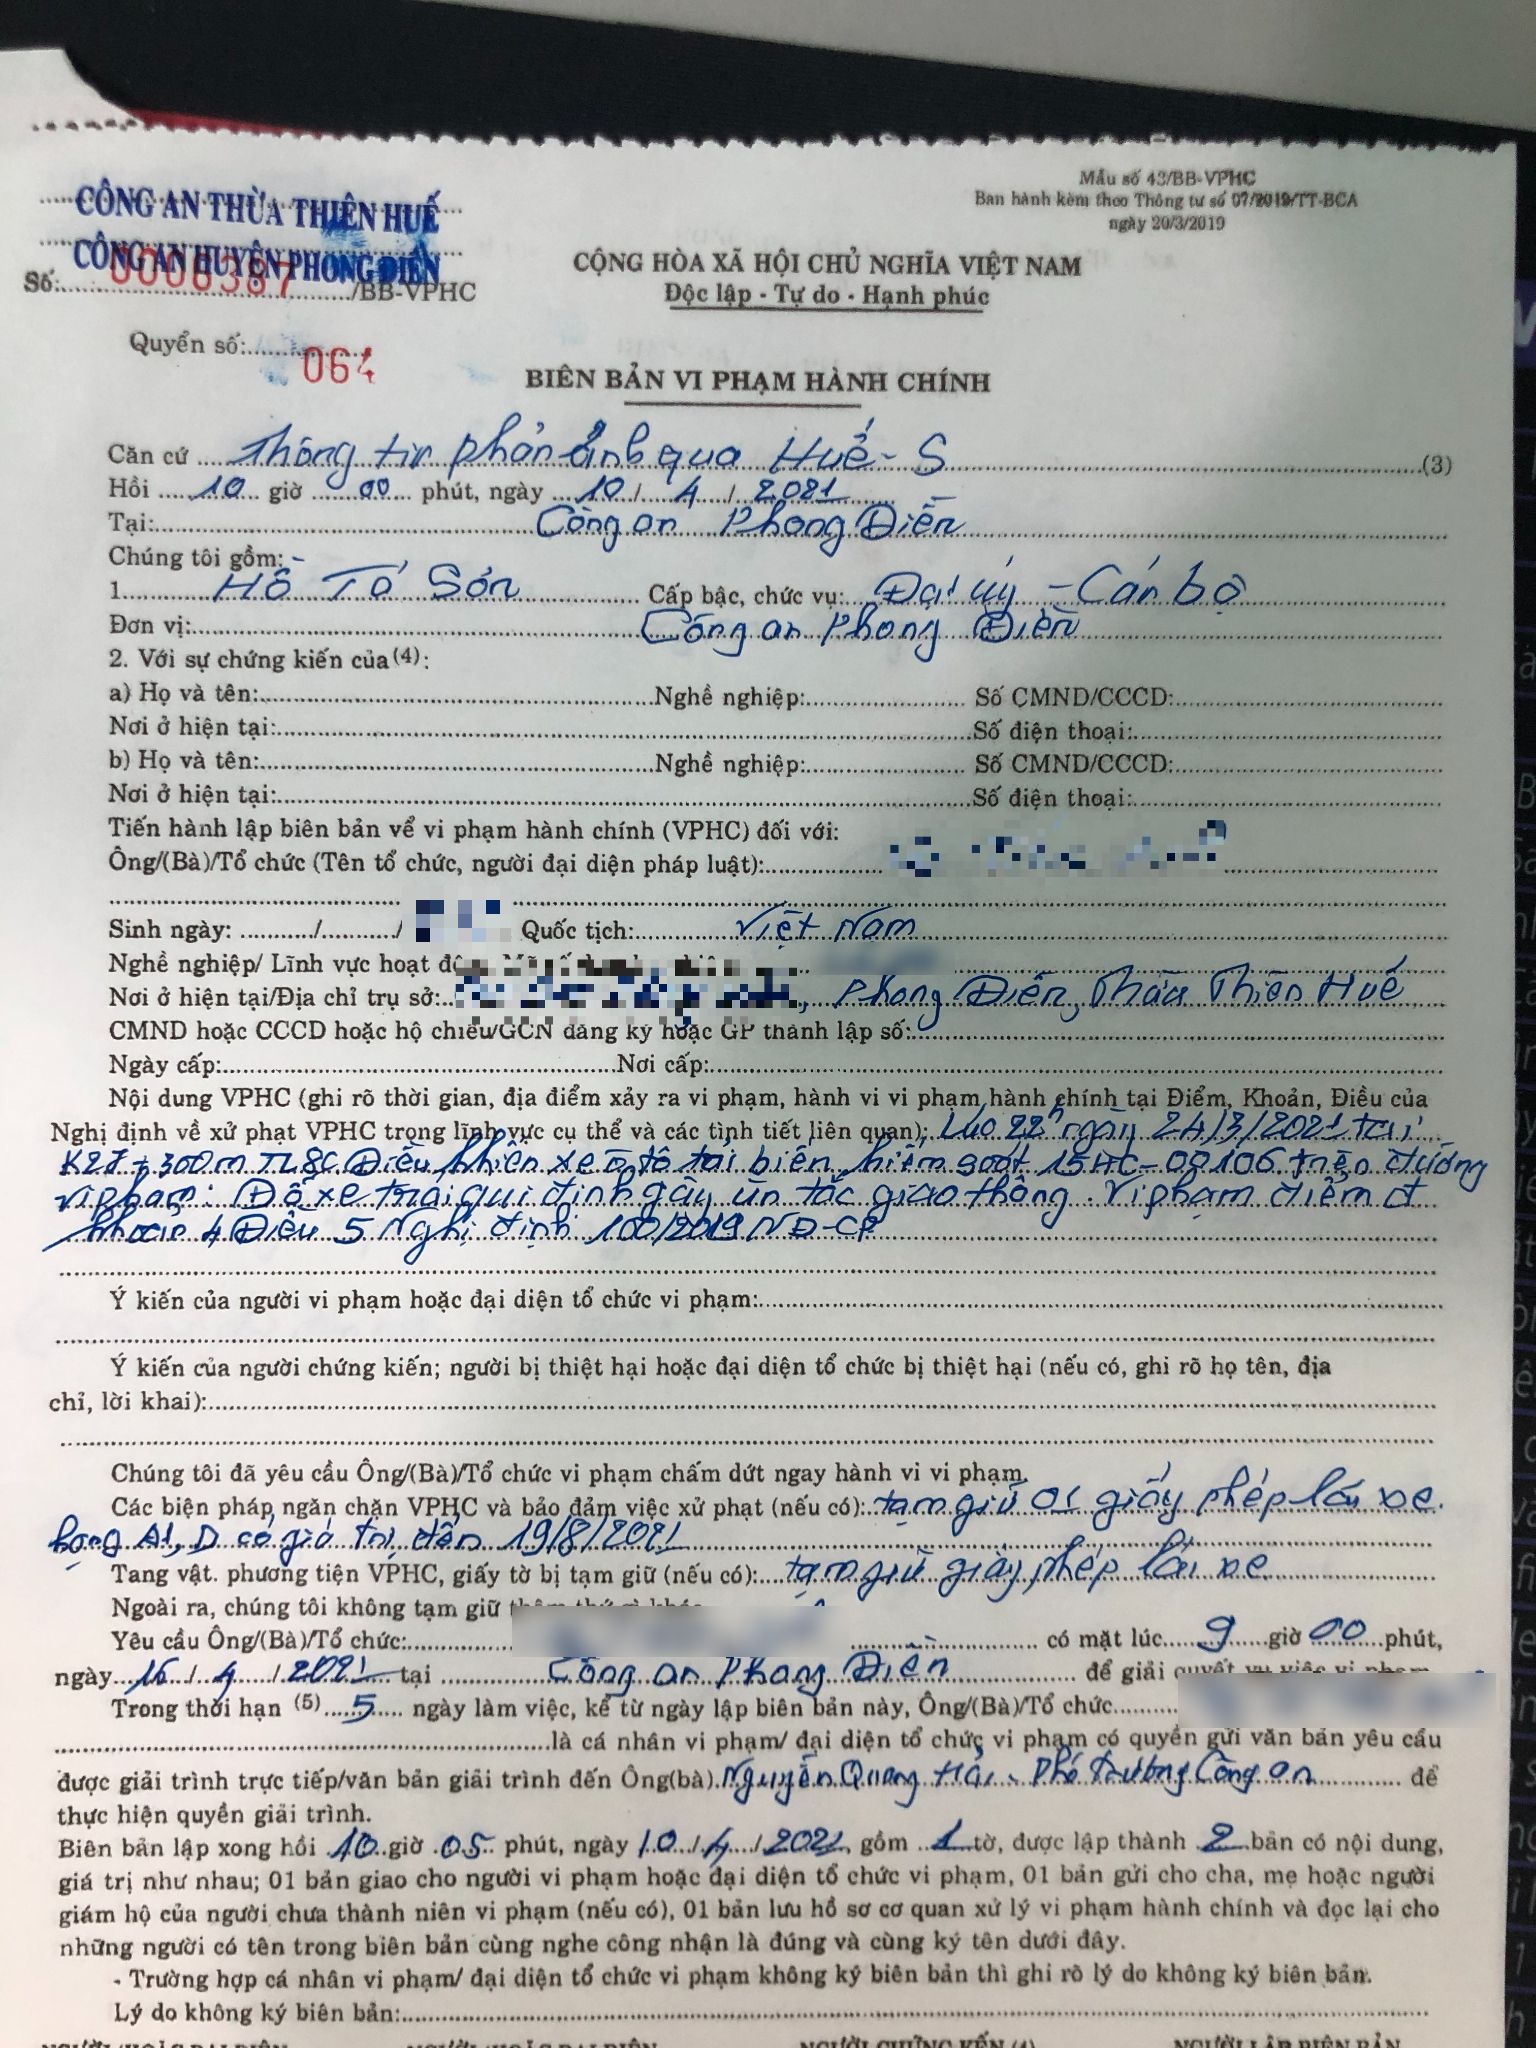 Mẫu số 43/BB-VPHC
Ban hành kèm theo Thông tư số 07/2019/TT-BCA
ngày 20/3/2019
CÔNG AN THỪA THIÊN HUẾ
CÔNG AN HUYỆN PHONG ĐIỀN
Số: 0006387 /BB-VPHC
CỘNG HÒA XÃ HỘI CHỦ NGHĨA VIỆT NAM
Độc lập - Tự do - Hạnh phúc
Quyển số: 064
BIÊN BẢN VI PHẠM HÀNH CHÍNH
Căn cứ Thông tin phản ánh qua Huế - S (3)
Hồi 10 giờ 00 phút, ngày 10 / 4 / 2021
Tại: Công an Phong Điền
Chúng tôi gồm:
1. Hồ Tá Sơn Cấp bậc, chức vụ: Đại úy - Cán bộ
Đơn vị: Công an Phong Điền
2. Với sự chứng kiến của (4):
a) Họ và tên: Nghề nghiệp: Số CMND/CCCD:
Nơi ở hiện tại: Số điện thoại:
b) Họ và tên: Nghề nghiệp: Số CMND/CCCD:
Nơi ở hiện tại: Số điện thoại:
Tiến hành lập biên bản về vi phạm hành chính (VPHC) đối với:
Ông/(Bà)/Tổ chức (Tên tổ chức, người đại diện pháp luật):
Sinh ngày: / / Quốc tịch: Việt Nam
Nghề nghiệp/ Lĩnh vực hoạt
Nơi ở hiện tại/Địa chỉ trụ sở: , Phong Điền, Thừa Thiên Huế
CMND hoặc CCCD hoặc hộ chiếu/GCN đăng ký hoặc GP thành lập số:
Ngày cấp: Nơi cấp:
Nội dung VPHC (ghi rõ thời gian, địa điểm xảy ra vi phạm, hành vi vi phạm hành chính tại Điểm, Khoản, Điều của
Nghị định về xử phạt VPHC trong lĩnh vực cụ thể và các tình tiết liên quan): Lúc 22h ngày 24/3/2021 tại
+ 300m TL8C Điều khiển xe ô tô tải biển kiểm soát 15HC-00106 trên đường
vi phạm: Đỗ xe trái qui định gây ùn tắc giao thông. Vi phạm điểm đ
khoản 4 Điều 5 Nghị định 100/2019 NĐ-CP
Ý kiến của người vi phạm hoặc đại diện tổ chức vi phạm:
Ý kiến của người chứng kiến; người bị thiệt hại hoặc đại diện tổ chức bị thiệt hại (nếu có, ghi rõ họ tên, địa
chỉ, lời khai):
Chúng tôi đã yêu cầu Ông/(Bà)/Tổ chức vi phạm chấm dứt ngay hành vi vi phạm.
Các biện pháp ngăn chặn VPHC và bảo đảm việc xử phạt (nếu có): tạm giữ 01 giấy phép lái xe
hạng A1, D có giá trị đến 19/8/2021
Tang vật. phương tiện VPHC, giấy tờ bị tạm giữ (nếu có): tạm giữ giấy phép lái xe
Ngoài ra, chúng tôi không tạm giữ
Yêu cầu Ông/(Bà)/Tổ chức: có mặt lúc 9 giờ 00 phút,
ngày 16 / 4 / 2021 tại Công an Phong Điền để giải quyết vụ việc vi phạm
Trong thời hạn (5) 5 ngày làm việc, kể từ ngày lập biên bản này, Ông/(Bà)/Tổ chức
là cá nhân vi phạm/ đại diện tổ chức vi phạm có quyền gửi văn bản yêu cầu
được giải trình trực tiếp/văn bản giải trình đến Ông(bà) Nguyễn Quang Hải - Phó Trưởng Công an để
thực hiện quyền giải trình.
Biên bản lập xong hồi 10 giờ 05 phút, ngày 10 / 4 / 2021 gồm 1 tờ, được lập thành 2 bản có nội dung,
giá trị như nhau; 01 bản giao cho người vi phạm hoặc đại diện tổ chức vi phạm, 01 bản gửi cho cha, mẹ hoặc người
giám hộ của người chưa thành niên vi phạm (nếu có), 01 bản lưu hồ sơ cơ quan xử lý vi phạm hành chính và đọc lại cho
những người có tên trong biên bản cùng nghe công nhận là đúng và cùng ký tên dưới đây.
- Trường hợp cá nhân vi phạm/ đại diện tổ chức vi phạm không ký biên bản thì ghi rõ lý do không ký biên bản.
Lý do không ký biên bản:
NGƯỜI CHỨNG KIẾN (4) NGƯỜI LẬP BIÊN BẢN